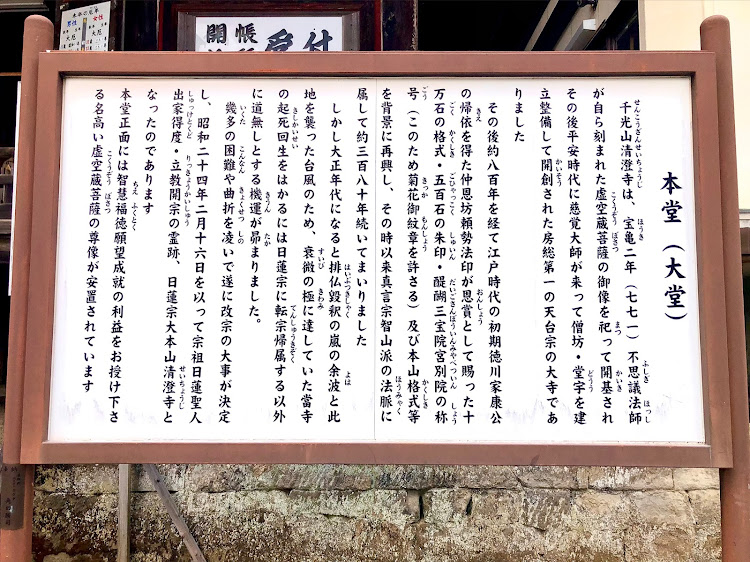 本堂（大堂）
千光山清澄寺は、宝亀二年（七七一）不思議法師
が自ら刻まれた虚空蔵菩薩の御像を祀って開基され
その後平安時代に慈覚大師が来って僧坊・堂宇を建
立整備して開創された房総第一の天台宗の大寺であ
りました
その後約八百年を経て江戸時代の初期徳川家康公
の帰依を得た仲恩坊頼勢法印が恩賞として賜った十
万石の格式・五百石の朱印・醍醐三宝院宮別院の称
号（このため菊花御紋章を許さる）及び本山格式等
を背景に再興し、その時以来真言宗智山派の法脈に
属して約三百八十年続いてまいりました
しかし大正年代になると排仏毀釈の嵐の余波と此
地を襲った台風のため、衰微の極に達していた當寺
の起死回生をはかるには日蓮宗に転宗帰属する以外
に道無しとする機運が昴まりました。
幾多の困難や曲折を凌いで遂に改宗の大事が決定
し、昭和二十四年二月十六日を以って宗祖日蓮聖人
出家得度・立教開宗の霊跡、日蓮宗大本山清澄寺と
なったのであります
本堂正面には智慧福徳願望成就の利益をお授け下さ
る名高い虚空蔵菩薩の尊像が安置されています
開帳
受付
男性
女性
大厄